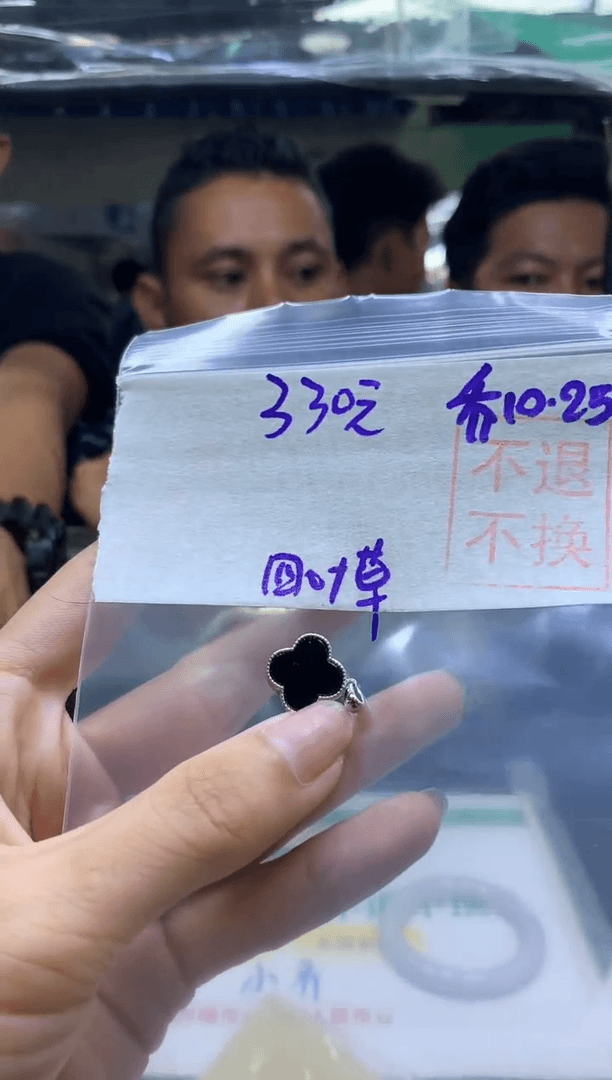 330元 乔10.25
不退
不换
四叶草
小乔